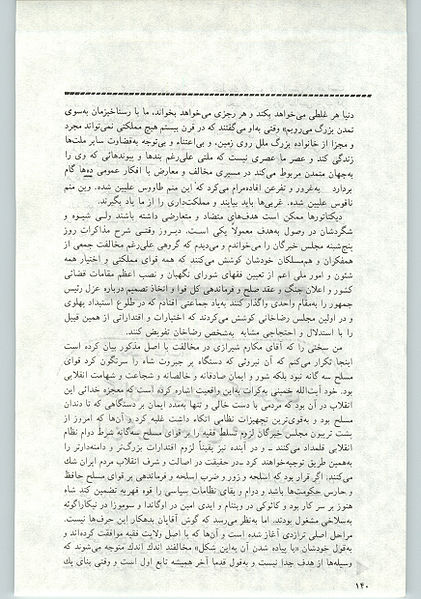 دنیا هر غلطی می‌خواهد بکند و هر رجزی می‌خواهد بخواند، ما با رستاخیزمان به‌سوی
تمدن بزرگ می‌رویم» وقتی به‌او می‌گفتند که در قرن بیستم هیچ مملکتی نمی‌تواند مجرد
و مجزا از خانواده بزرگ ملل روی زمین، و بی‌اعتناء و بی‌توجه به‌قضاوت سایر ملت‌ها
زندگی کند و عصر ما عصری نیست که ملتی علی‌رغم بندها و پیوندهائی که وی را
به‌جهان متمدن مربوط می‌کند در مسیری مخالف و معارض با افکار عمومی ده‌ها گام
بردارد به‌غرور و تفرعن افاده‌مرام می‌کرد که این منم طاووس علیین شده. وین منم
ناقوس علیین شده. غربی‌ها باید بیایند و مملکت‌داری را از ما یاد بگیرند.
دیکتاتورها ممکن است هدف‌های متضاد و متعارضی داشته باشند ولی شیوه و
شگردشان در وصول به‌هدف معمولا یکی است. دیروز وقتی شرح مذاکرات روز
پنج‌شنبه مجلس خبرگان را می‌خواندم و می‌دیدم که گروهی علی‌رغم مخالفت جمعی از
همفکران و هم‌مسلکان خودشان کوشش می‌کنند که همه قوای مملکتی و اختیار همه
شئون و امور ملی اعم از تعیین فقهای شورای نگهبان و نصب اعظم مقامات قضائی
کشور و اعلان جنگ و عقد صلح و فرماندهی کل قوا و اتخاذ تصمیم درباره عزل رئیس
جمهور را به‌مقام واحدی واگذار کنند به‌یاد جماعتی افتادم که در طلوع استبداد پهلوی و
و در اولین مجلس رضاخانی کوشش می‌کردند که اختیارات و اقتداراتی از همین قبیل
را با استدلال و احتجاجی مشابه به‌شخص رضاخان تفویض کنند.
من سخنی را که آقای مکارم شیرازی در مخالفت با اصل مذکور بیان کرده است
اینجا تکرار می‌کنم که آن نیروئی که دستگاه پر جبروت شاه را سرنگون کرد قوای
مسلح سه گانه نبود بلکه شور و ایمان صادقانه و خالصانه و شجاعت و شهامت انقلابی
بود. خود آیت‌الله خمینی به‌کرات به‌این واقعیت اشاره کرده است که معجزه خدائی این
انقلاب در آن بود که مردمی با دست خالی و تنها به‌مدد ایمان بر دستگاهی که تا دندان
مسلح بود و به‌قوی‌ترین تجهیزات نظامی اتکاء داشت غلبه کرد و آن‌ها که امروز از
پشت تریبون مجلس خبرگان لزوم تسلط فقیه را بر قوای مسلح سه‌گانه شرط دوام نظام
انقلابی قلمداد می‌کنند ــ و در آینده نیز یقیناً لزوم اقتدارات بزرگ‌تر و دامنه‌دارتر را
به‌همین طریق توجیه‌خواهند کرد ــ در حقیقت در اصالت و شرف انقلاب مردم ایران شك
می‌کنند. اگر قرار بود که اسلحه و زور و ضرب اسلحه و فرماندهی بر قوای مسلح حافظ
و حارس حکومت‌ها باشد و دوام و بقای نظامات سیاسی را قوه قهریه تضمین کند شاه
هنوز بر سر کار بود و کائوکی در ویتنام و ایدی امین در اوگاندا و سوموزا در نیکاراگوئه
به‌سلاخی مشغول بودند. اما به‌نظر می‌رسد که گوش آقایان بدهکار این حرف‌ها نیست.
مراحل اصلی تراژدی آغاز شده است و آن‌ها که با اصل ولایت فقیه موافقت کرده‌اند و
به‌قول خودشان «با پیاده شدن آن به‌این شکل» مخالفند اندك اندك متوجه می‌شوند که
وسیله‌ها از هدف جدا نیست و به‌قول قدما آخر همیشه تابع اول است و وقتی بنای یك
۱۴۰